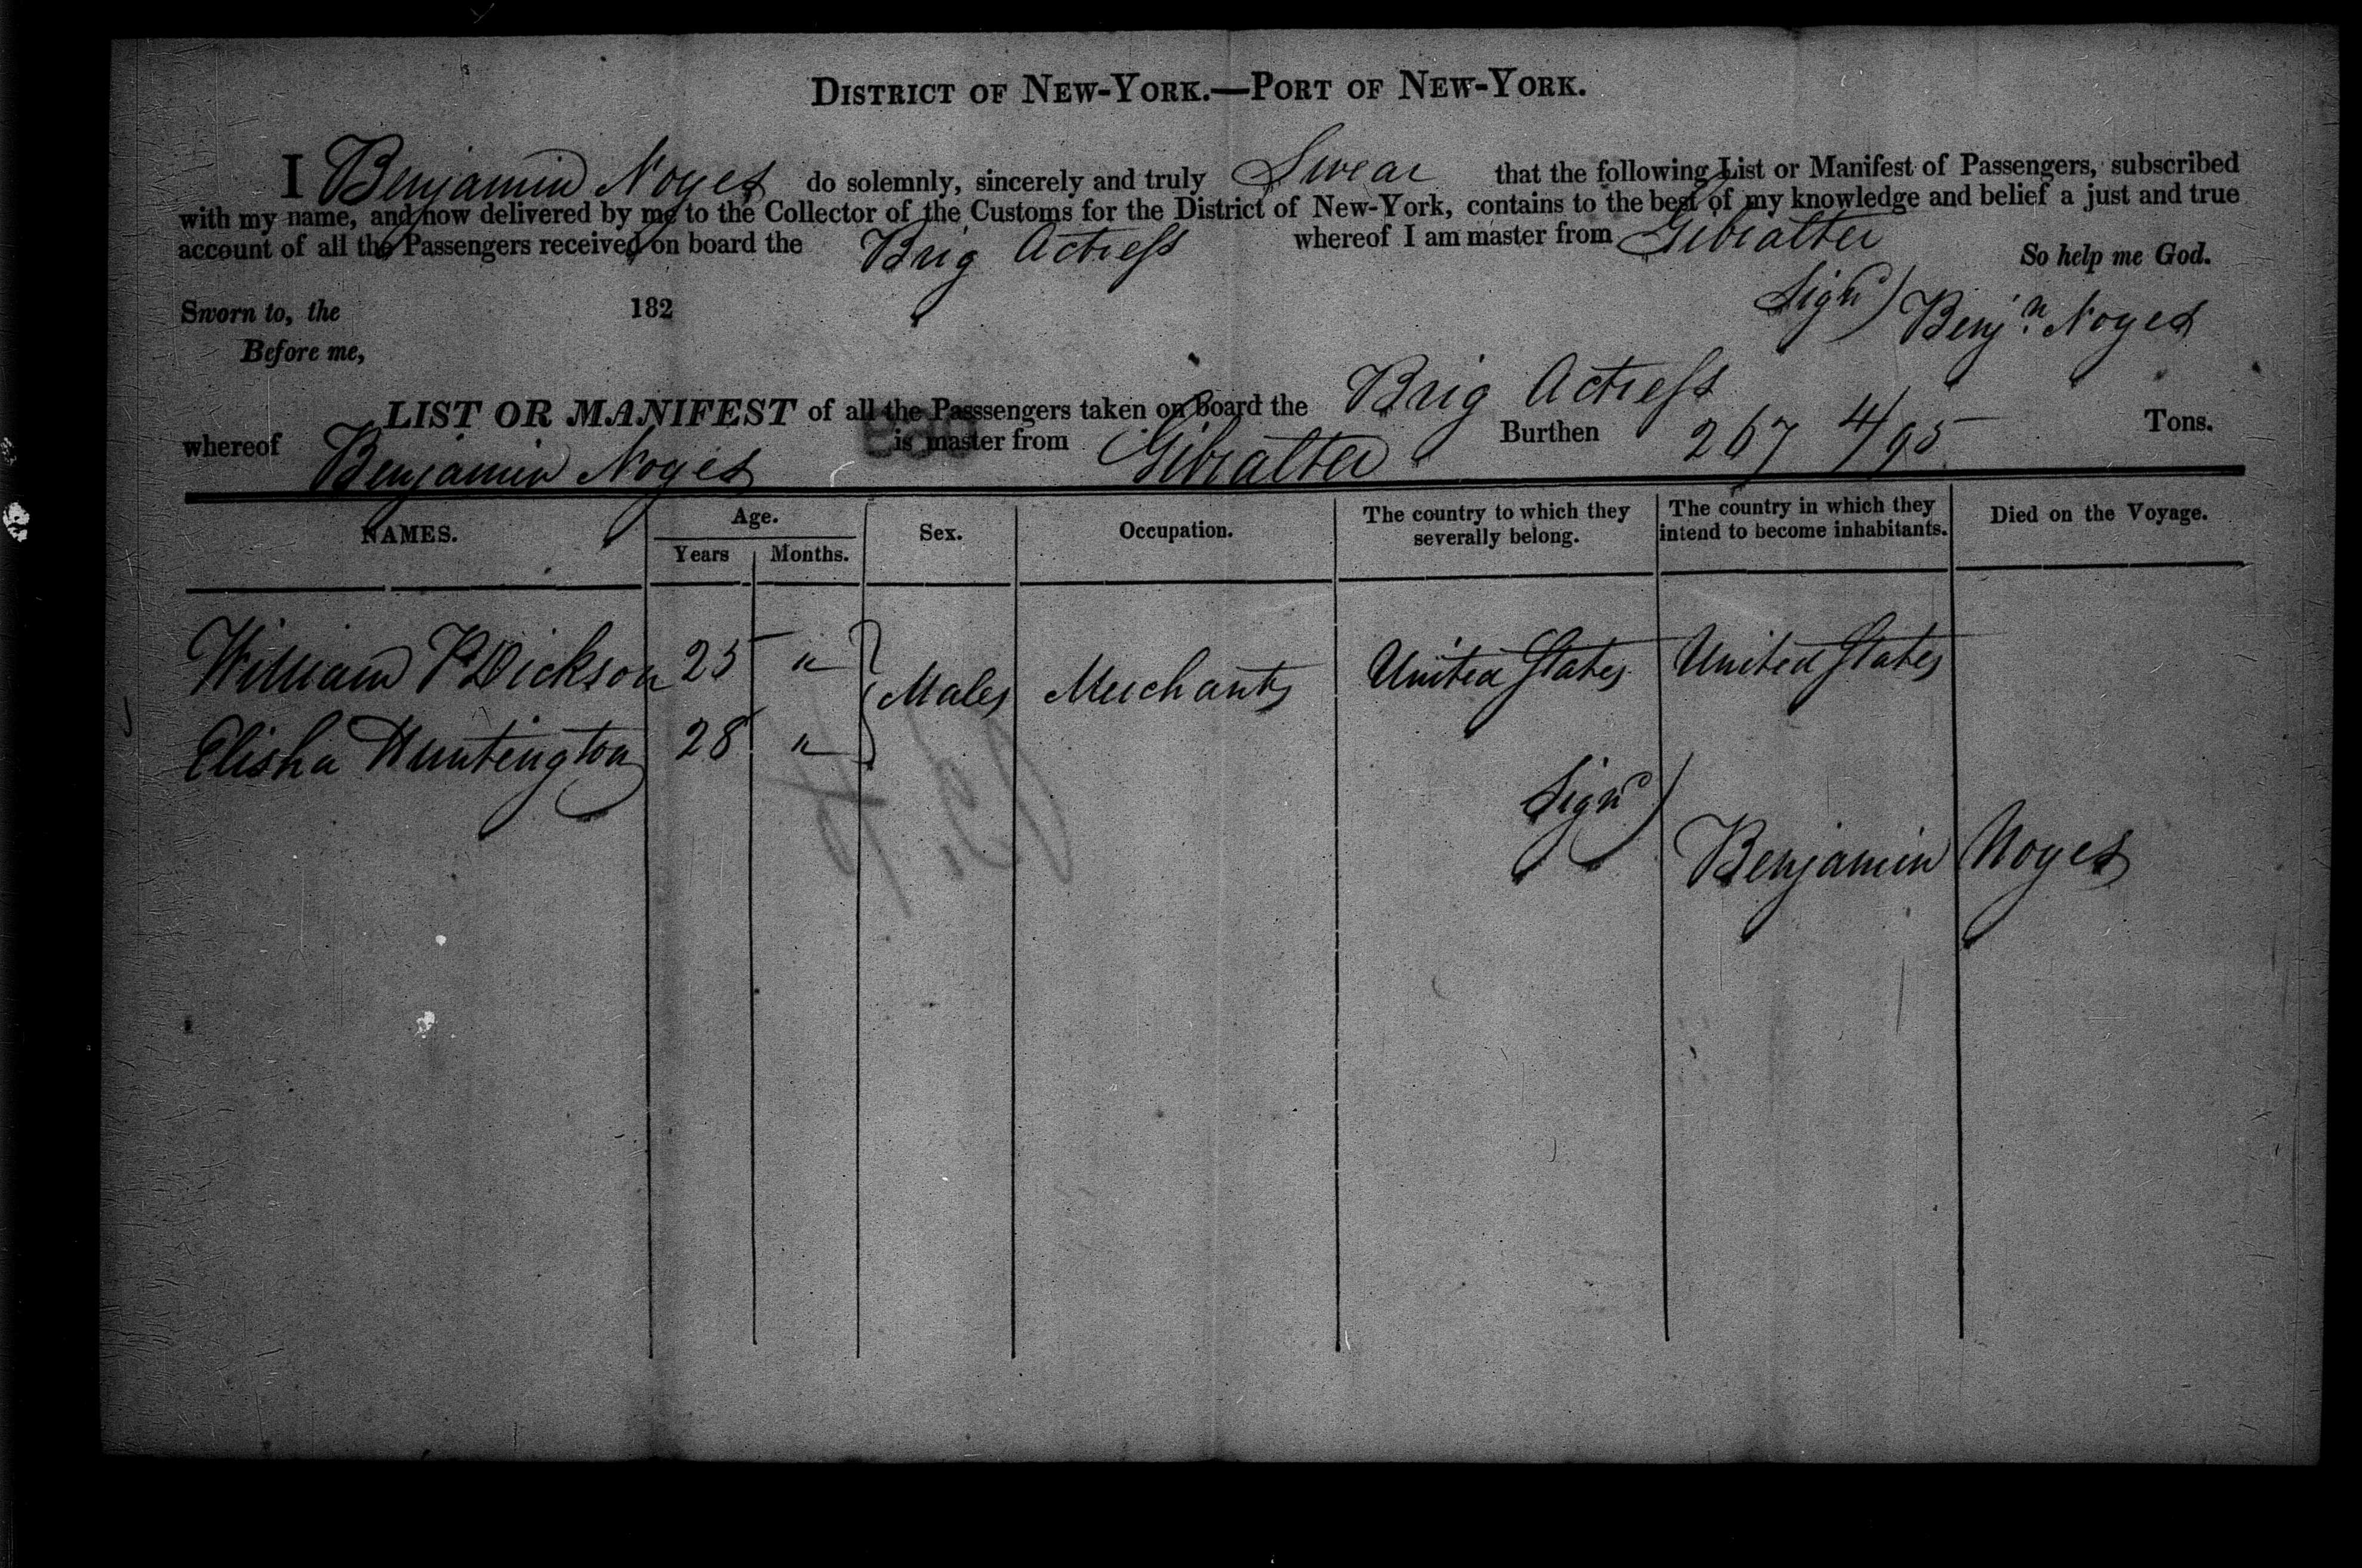 DISTRICT OF NEW-YORK.—PORT OF NEW-YORK.
I Benjamin Noyes do solemnly, sincerely and truly Swear that the following List or Manifest of Passengers, subscribed
with my name, and now delivered by me to the Collector of the Customs for the District of New-York, contains to the best of my knowledge and belief a just and true
account of all the Passengers received on board the Brig Actress whereof I am master from Gibralter
So help me God.
Sworn to, the 182
Sign^d) Benj^n. Noyes
Before me,
LIST OR MANIFEST of all the Passsengers taken on board the Brig Actress
whereof Benjamin Noyes is master from Gibralter Burthen 267 4/95 Tons.
NAMES. Age. Sex. Occupation. The country to which they severally belong. The country in which they intend to become inhabitants. Died on the Voyage.
Years Months.
William P Dickson 25 " Males Merchants United States United States
Elisha Huntington 28 "
Sign^d)
Benjamin Noyes